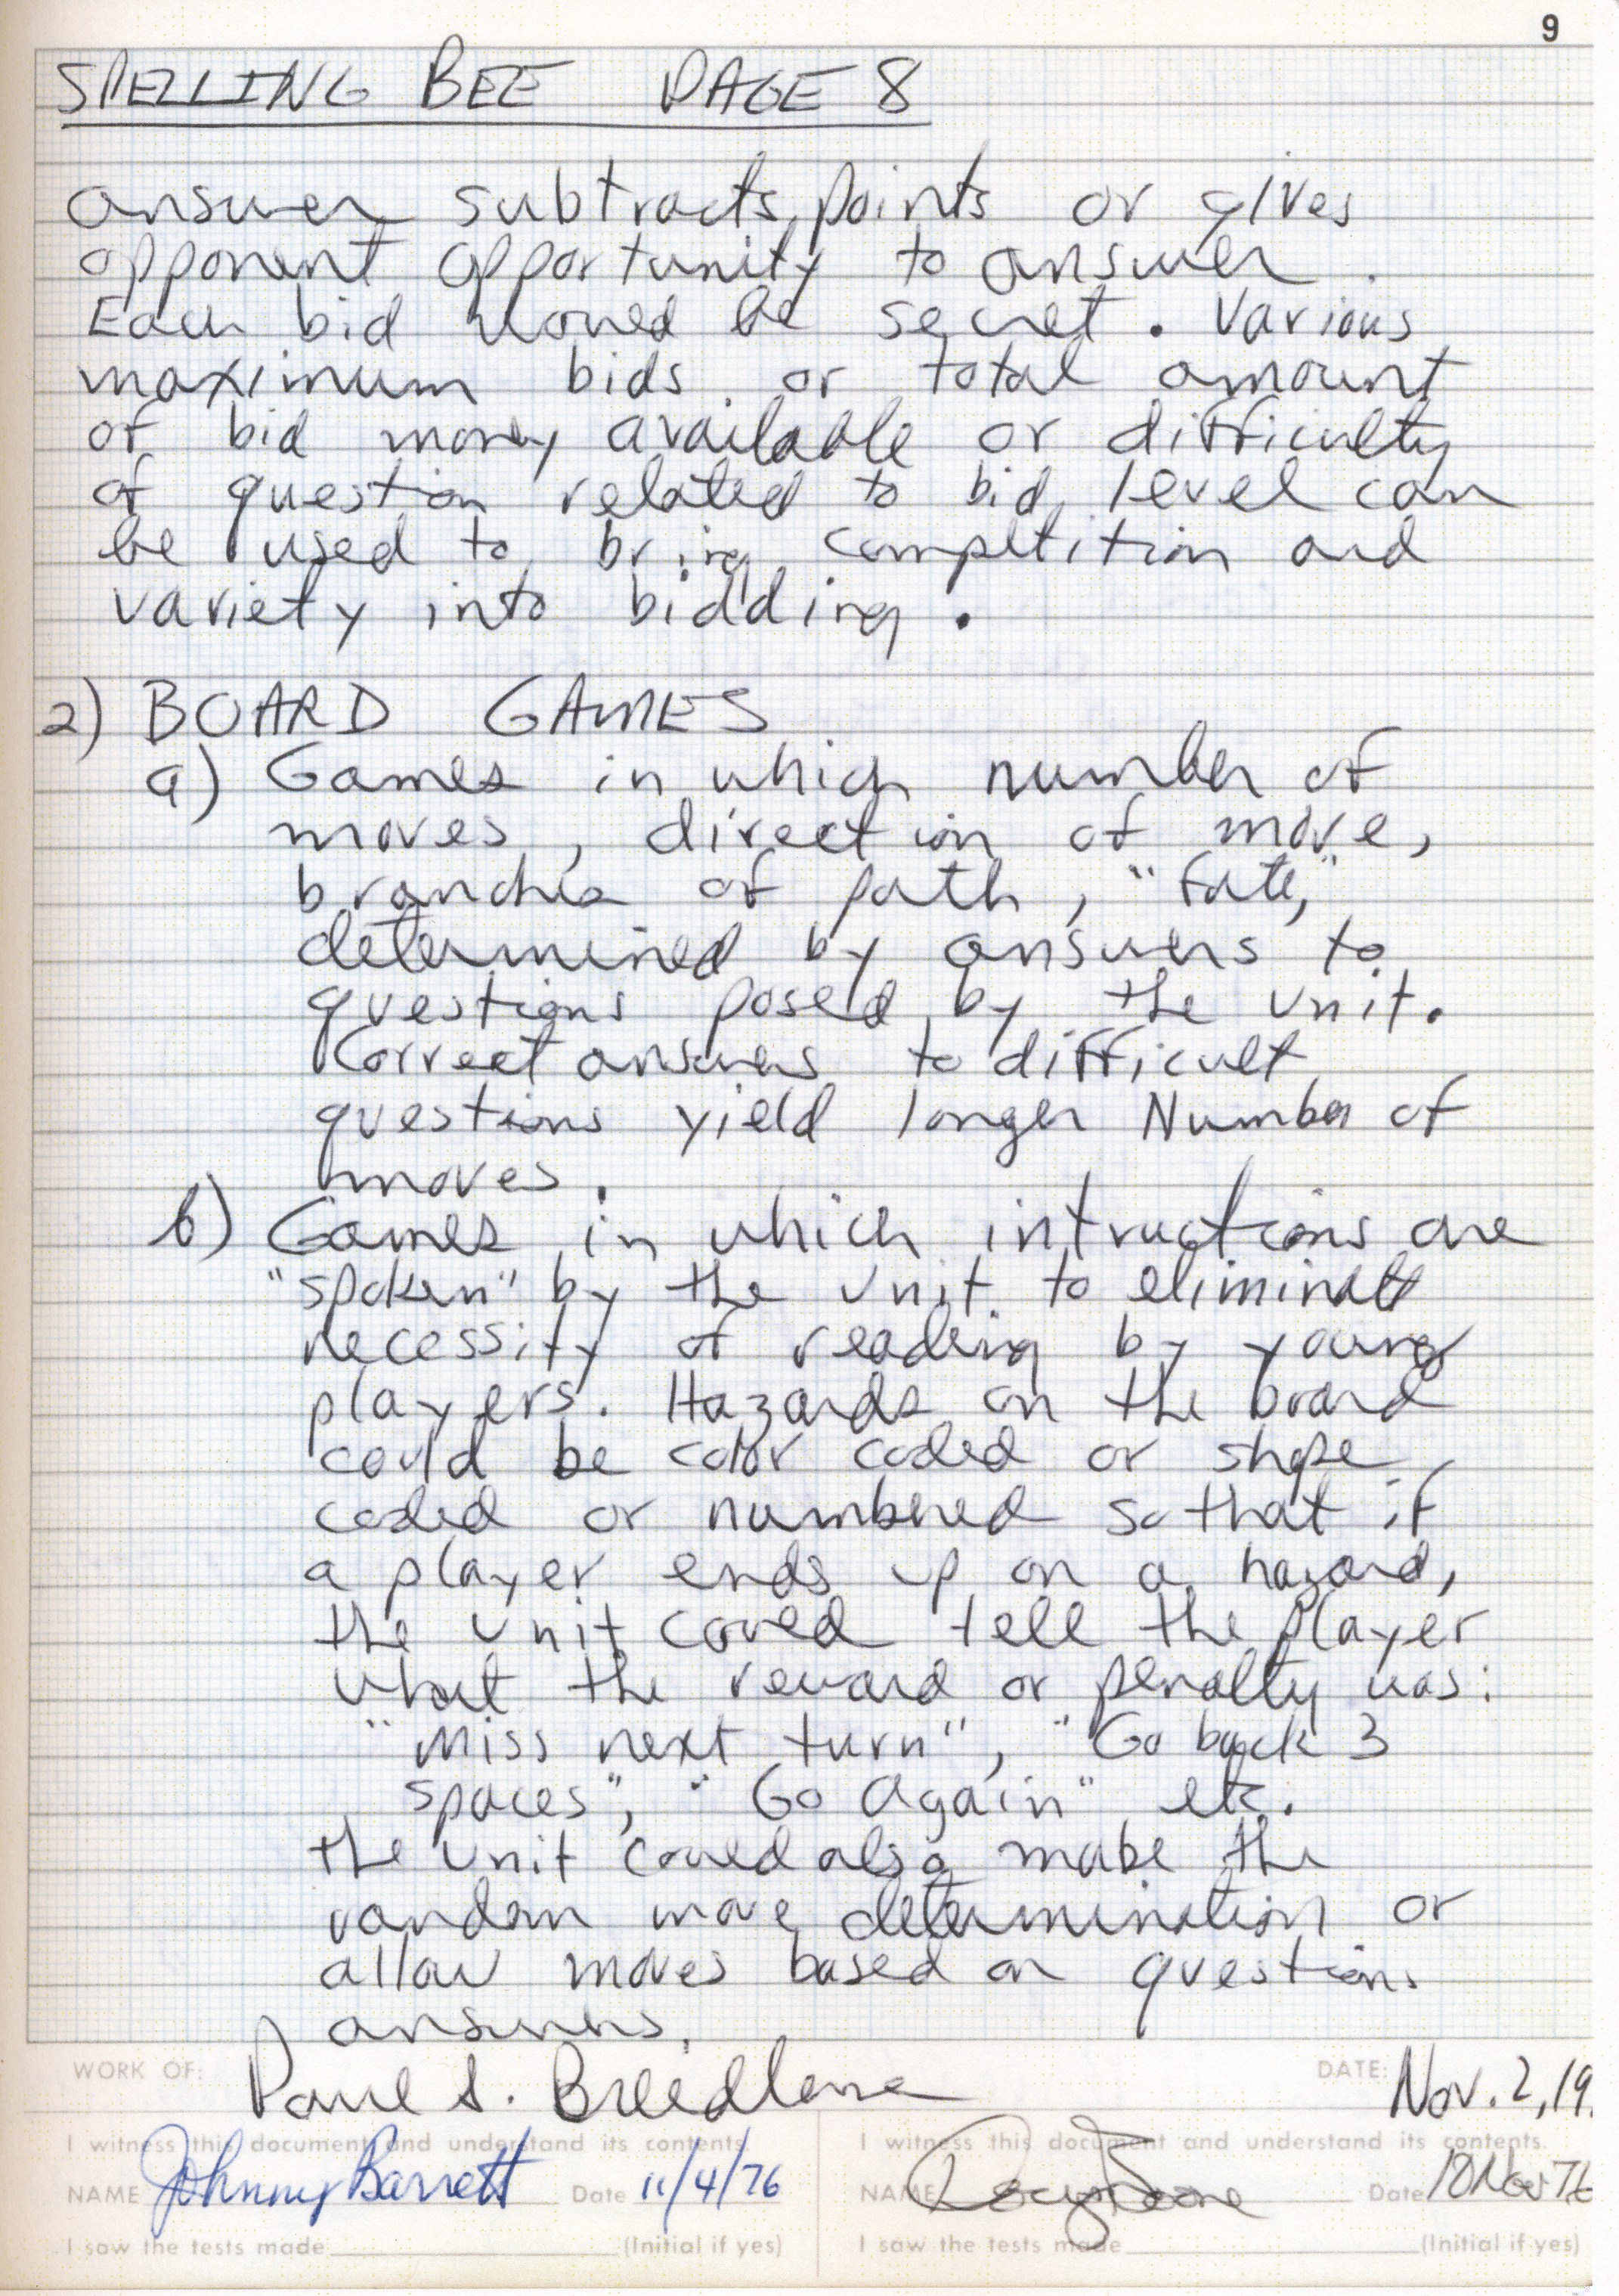 9
SPELLING BEE PAGE 8
answer subtracts points or gives
opponent opportunity to answer.
Each bid would be secret. Various
maximum bids or total amount
of bid money available or difficulty
of question related to bid level can
be used to bring competition and
variety into bidding.
2) BOARD GAMES
a) Games in which number of
moves, direction of move,
branches of path, "fate,"
determined by answers to
questions posed by the unit.
Correct answers to difficult
questions yield longer Number of
moves.
b) Games in which intructions are
"spoken" by the unit to eliminate
necessity of reading by young
players. Hazards on the board
could be color coded or shape
coded or numbered so that if
a player ends up on a hazard,
the unit could tell the player
what the reward or penalty was:
"Miss next turn", "Go back 3
spaces", "Go Again" etc.
the unit could also make the
random move determination or
allow moves based on questions
answers.
WORK OF: Paul S. Breedlove DATE: Nov. 2, 19
I witness this document and understand its contents. I witness this document and understand its contents.
NAME Johnny Barrett Date 11/4/76 NAME Date 10 Nov 76
I saw the tests made (Initial if yes) I saw the tests made (Initial if yes)